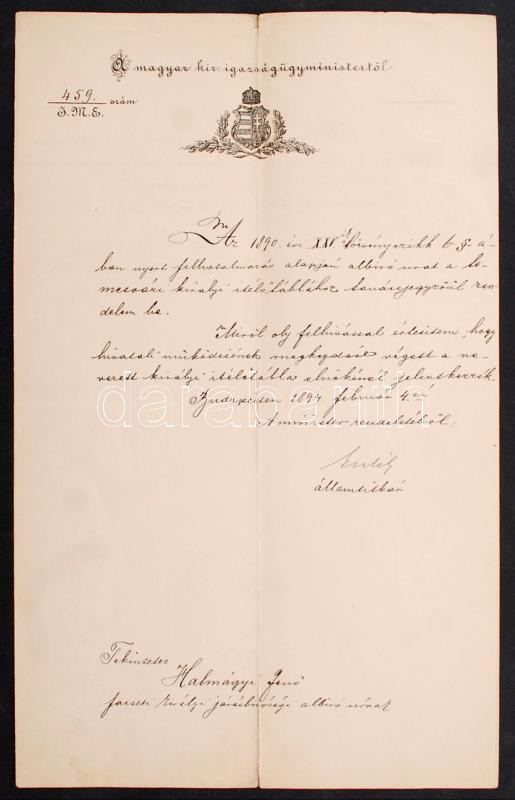 A magyar kir. igazságügyministertől
459.
szám
I.M.E.
Az 1890. évi XXV. törvényczikk 6 §-á-
ban nyert felhatalmazás alapján albiró urat a te-
mesvári királyi itélőtáblához tanácsjegyzőül ren-
delem be.
Miről oly felhivással értesitem, hogy
hivatali működésének megkezdése végett a ne-
vezett királyi itélőtábla elnökénél jelentkezzék.
Budapesten 1894. február 4.én
A minister rendeletéből:
államtitkár
darabanth
Tekintetes
Halmágyi Jenő
királyi járásbirósági albiró urnak